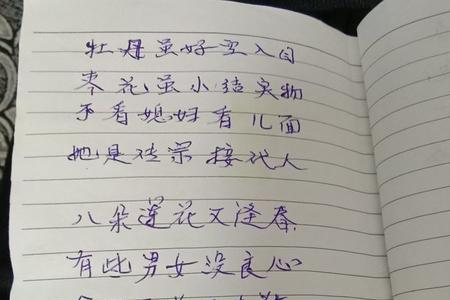 牡丹虽好空入目
枣花虽小结实物
不看媳妇看儿面
她是传宗接代人
八朵莲花又逢春
有些男女没良心